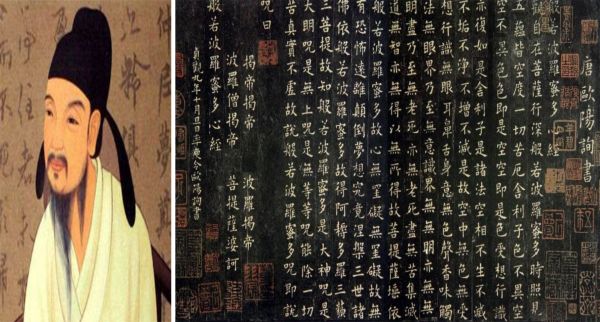 唐歐陽詢書
多心經
自在菩薩行深般若波羅蜜多時照見
五蘊皆空度一切苦厄舍利子色不異空
空不異色色即是空空即是色受想行識
亦復如是舍利子是諸法空相不生不滅
不垢不淨不增不減是故空中無色無受
想行識無眼耳鼻舌身意無色聲香味觸
法無眼界乃至無意識界無無明亦無無
明盡乃至無老死亦無老死盡無苦集滅
道無智亦無得以無所得故菩提薩埵依
般若波羅蜜多故心無罣礙無罣礙故無
有恐怖遠離顛倒夢想究竟涅槃三世諸
佛依般若波羅蜜多故得阿耨多羅三藐
三菩提故知般若波羅蜜多是大神呪是
大明呪是無上呪是無等等呪能除一切
苦真實不虛故說般若波羅蜜多呪即說
呪曰
揭帝揭帝 波羅揭帝
波羅僧揭帝 菩提薩婆訶
般若波羅蜜多心經
貞觀九年十月旦日率更令歐陽詢書